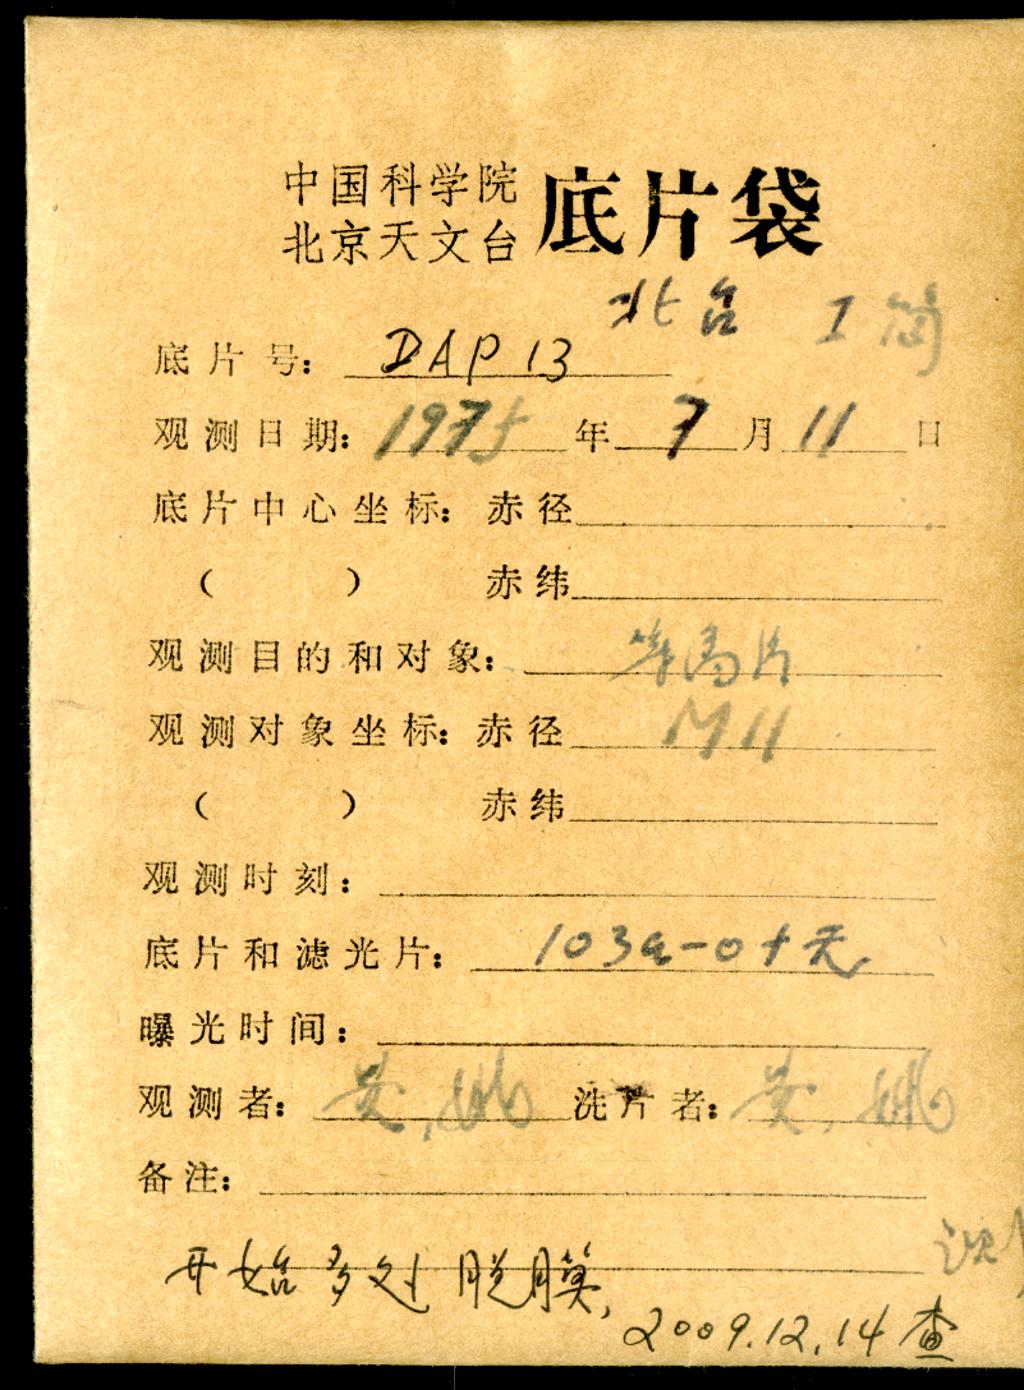 中国科学院
北京天文台 底片袋
北台 I 简
底片号： DAP 13
观测日期： 1975 年 7 月 11 日
底片中心坐标： 赤径
（ ） 赤纬
观测目的和对象： 等高片
观测对象坐标： 赤径 M11
（ ） 赤纬
观测时刻：
底片和滤光片： 103a-0+无
曝光时间：
观测者： 黄，姚 洗片者： 黄，姚
备注：
开始多处脱膜，
2009.12.14 查